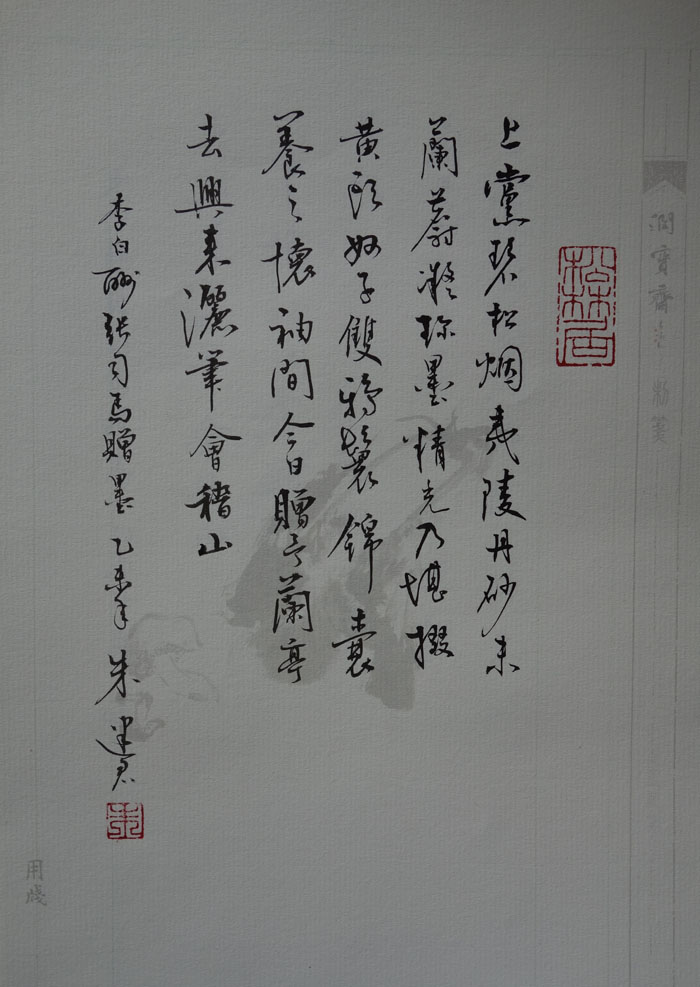 上黨碧松烟夷陵丹砂末
蘭麝凝珎墨精光乃堪掇
黄頭奴子雙鴉鬟錦囊
養之懷袖間今日贈予蘭亭
去興來灑筆會稽山
李白酬張司馬贈墨乙未年朱建君
松林居
朱
潤寶齋
粉箋
用箋